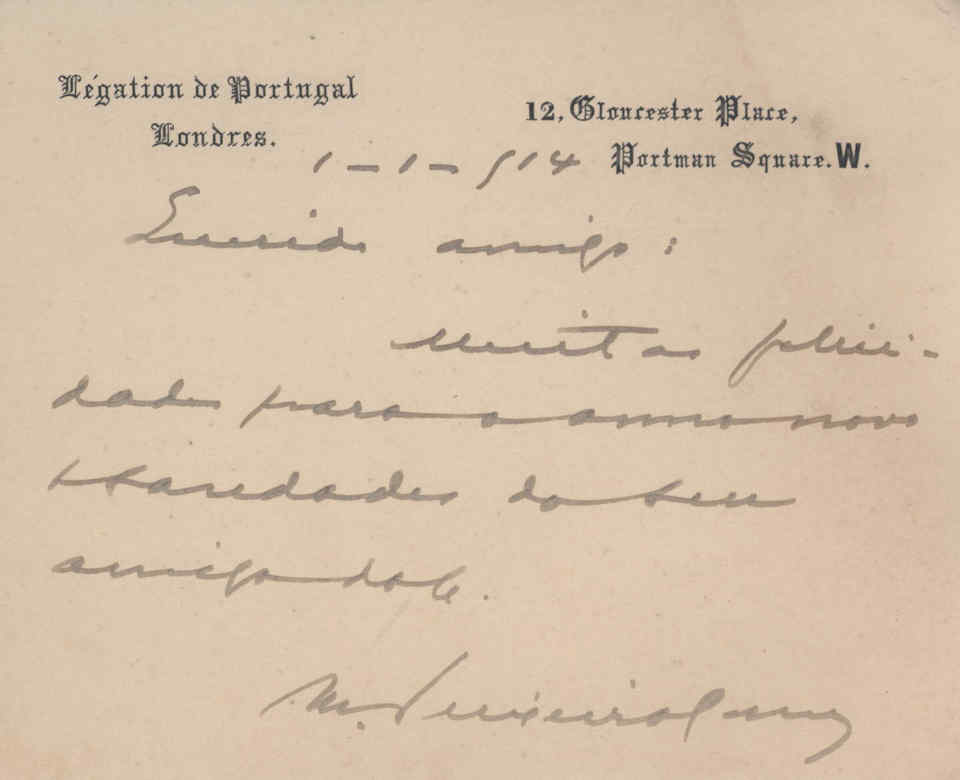 Légation de Portugal
Londres.
12, Gloucester Place,
Portman Square. W.
1-1-914
Querido amigo:
Muitas felici-
dades para o anno novo
e saudades do seu
amigo
M. Teixeira Gomes